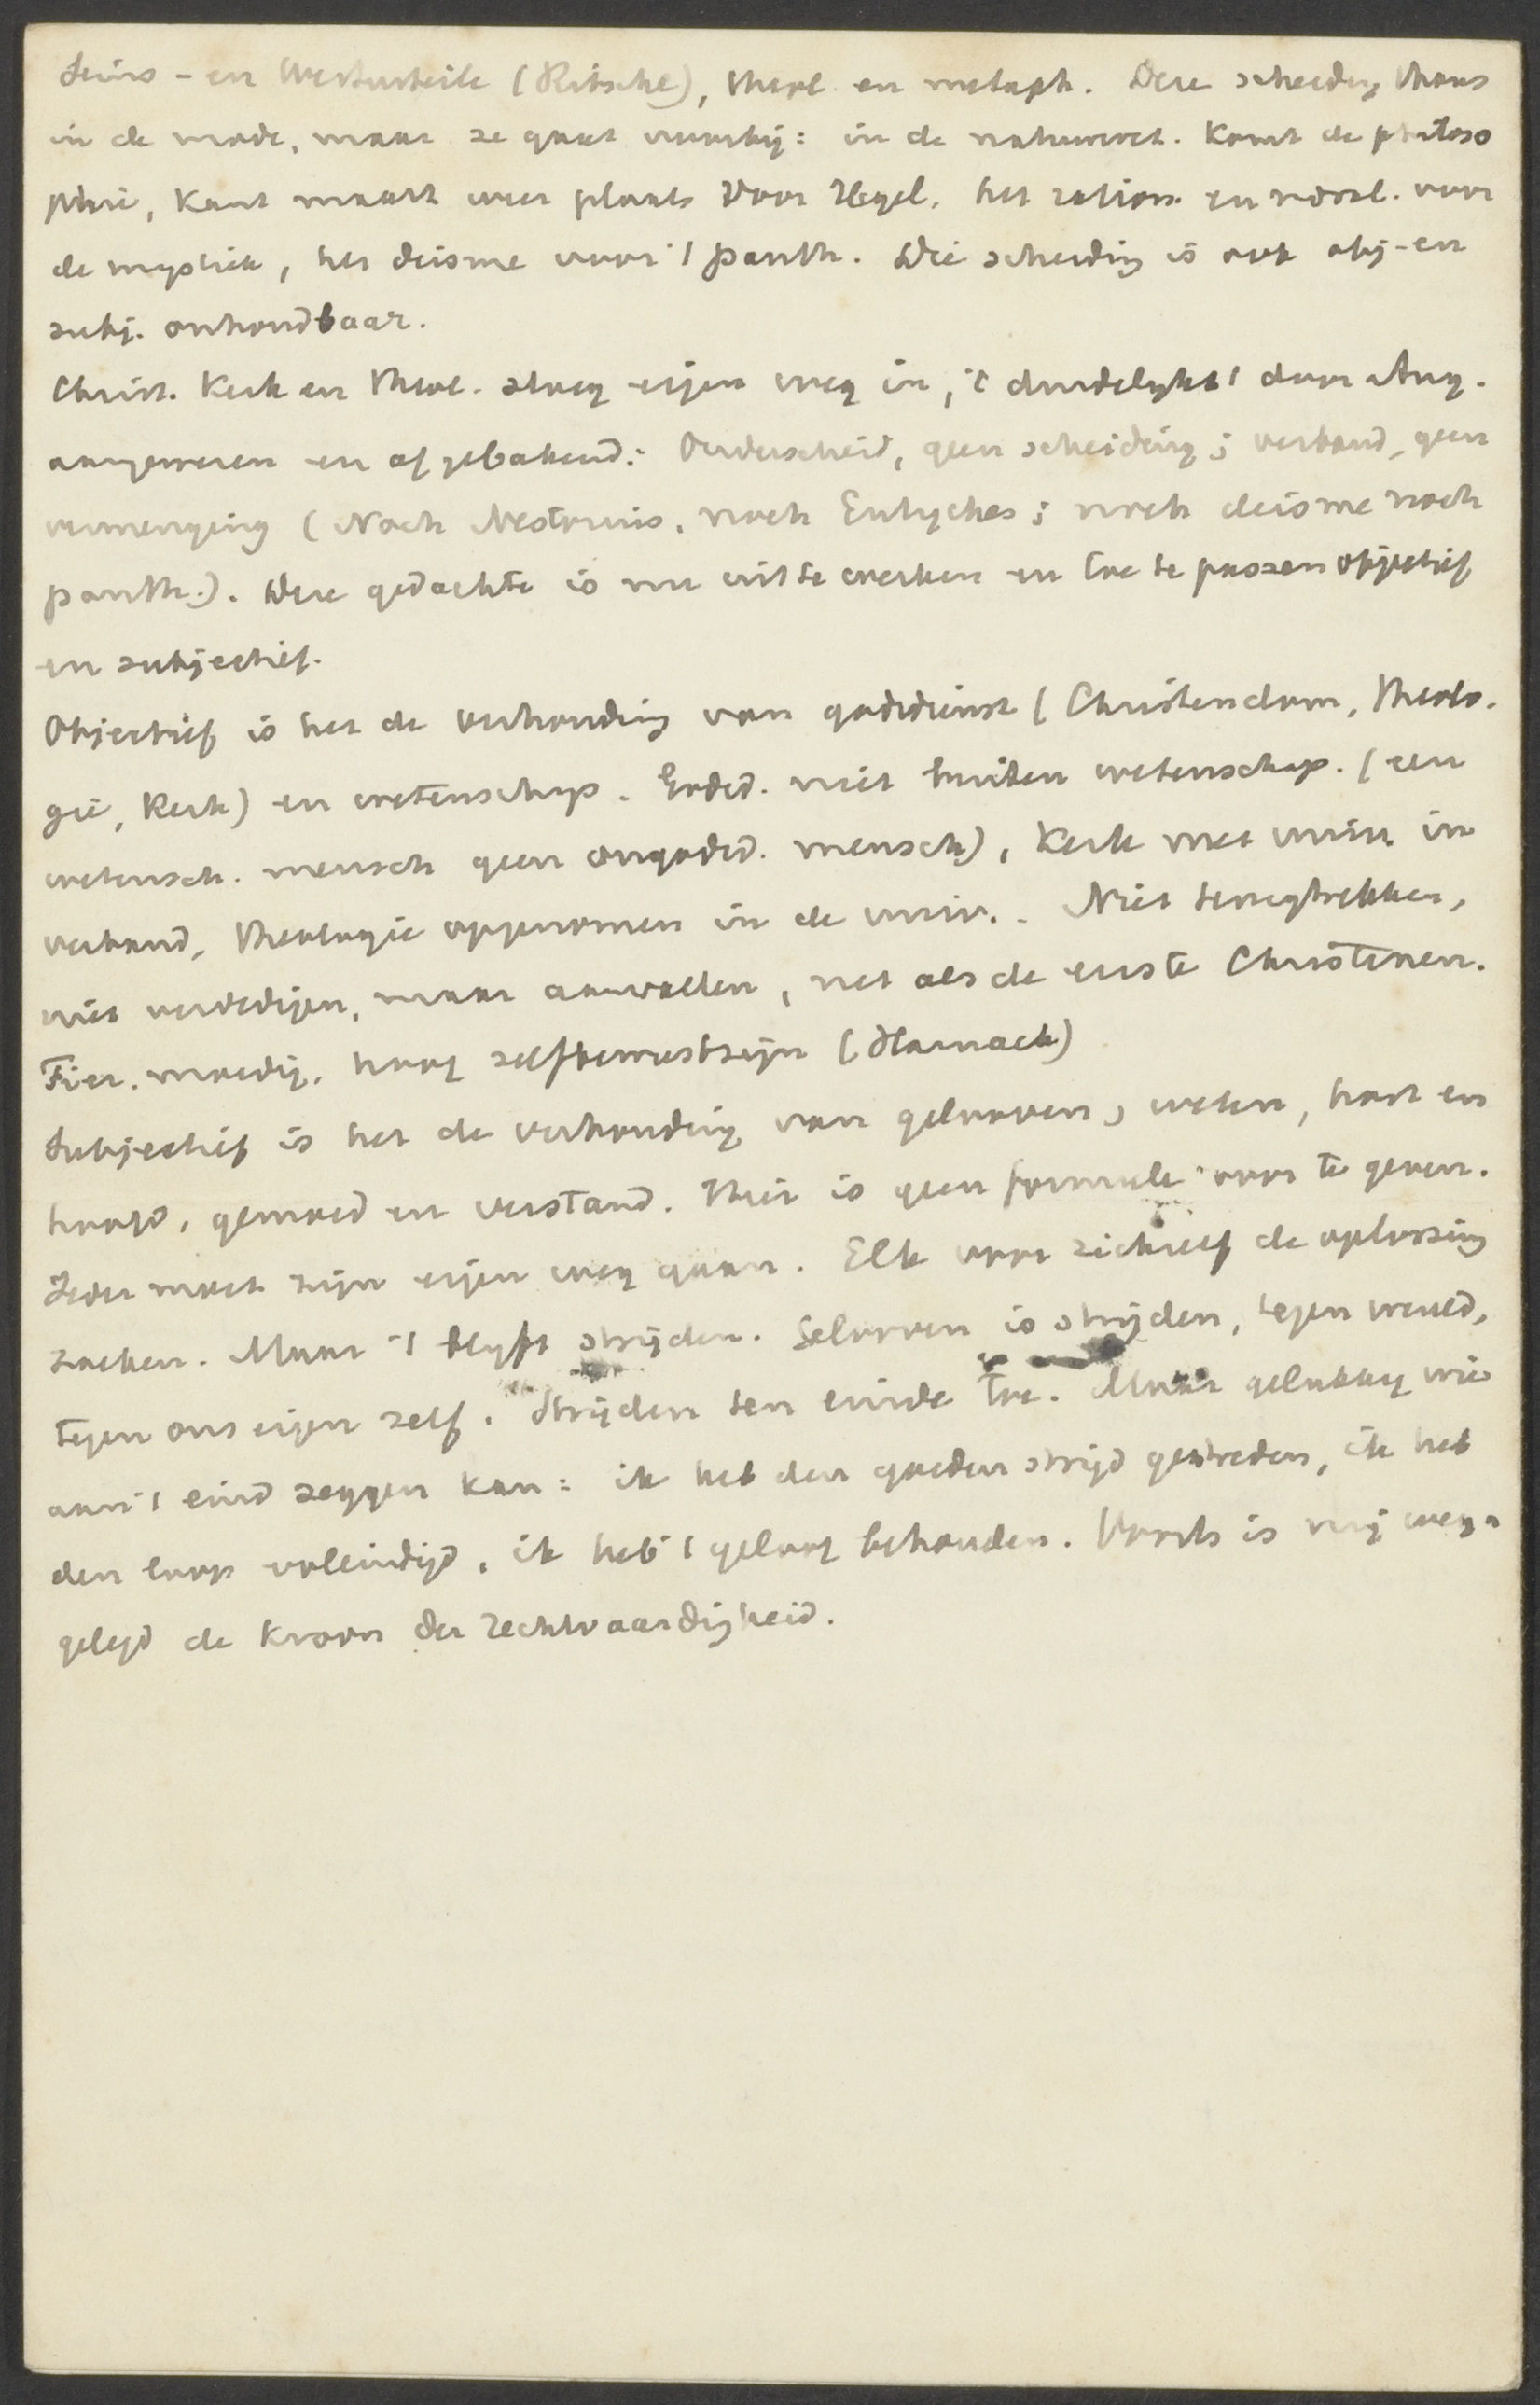 Seins- en Werturteile (Ritschl), theol. en metaph. Deze scheiding thans
in de mode, maar ze gaat voorbij: in de natuurwet. komt de philoso
phie, Kant maakt weer plaats voor Hegel, het ration. en moral. voor
de mystiek, het deisme voor 't panth. Die scheiding is ook obj- en
subj. onhoudbaar.
Christ. Kerk en theol. sloeg eigen weg in, 't duidelykst door Aug.
aangewezen en afgebakend: Onderscheid, geen scheiding; verband, geen
vermenging (Noch Nestorius, noch Eutyches; noch deisme noch
panth.). Deze gedachte is nu uit te werken en toe te passen objectief
en subjectief.
Objectief is het de verhouding van godsdienst (Christendom, Theolo-
gie, Kerk) en wetenschap. Godsd. niet buiten wetenschap. (een
wetensch. mensch geen ongodsd. mensch), Kerk met univ. in
verband, theologie opgenomen in de univ.. Niet terugtrekken,
niet verdedigen, maar aanvallen, net als de eerste Christenen.
Fier, moedig, hoog zelfbewustzijn (Harnack)
Subjectief is het de verhouding van gelooven, weten, hart en
hoofd, gemoed en verstand. Hier is geen formule voor te geven.
Ieder moet zijn eigen weg gaan. Elk voor zichzelf de oplossing
zoeken. Maar 't blyft strijden. Gelooven is strijden, tegen wereld,
tegen ons eigen zelf. Strijden ten einde toe. Maar gelukkig wie
aan 't eind zeggen kan: ik heb den goeden strijd gestreden, ik heb
den loop voleindigd, ik heb 't geloof behouden. Voorts is mij weg-
gelegd de kroon der rechtvaardigheid.